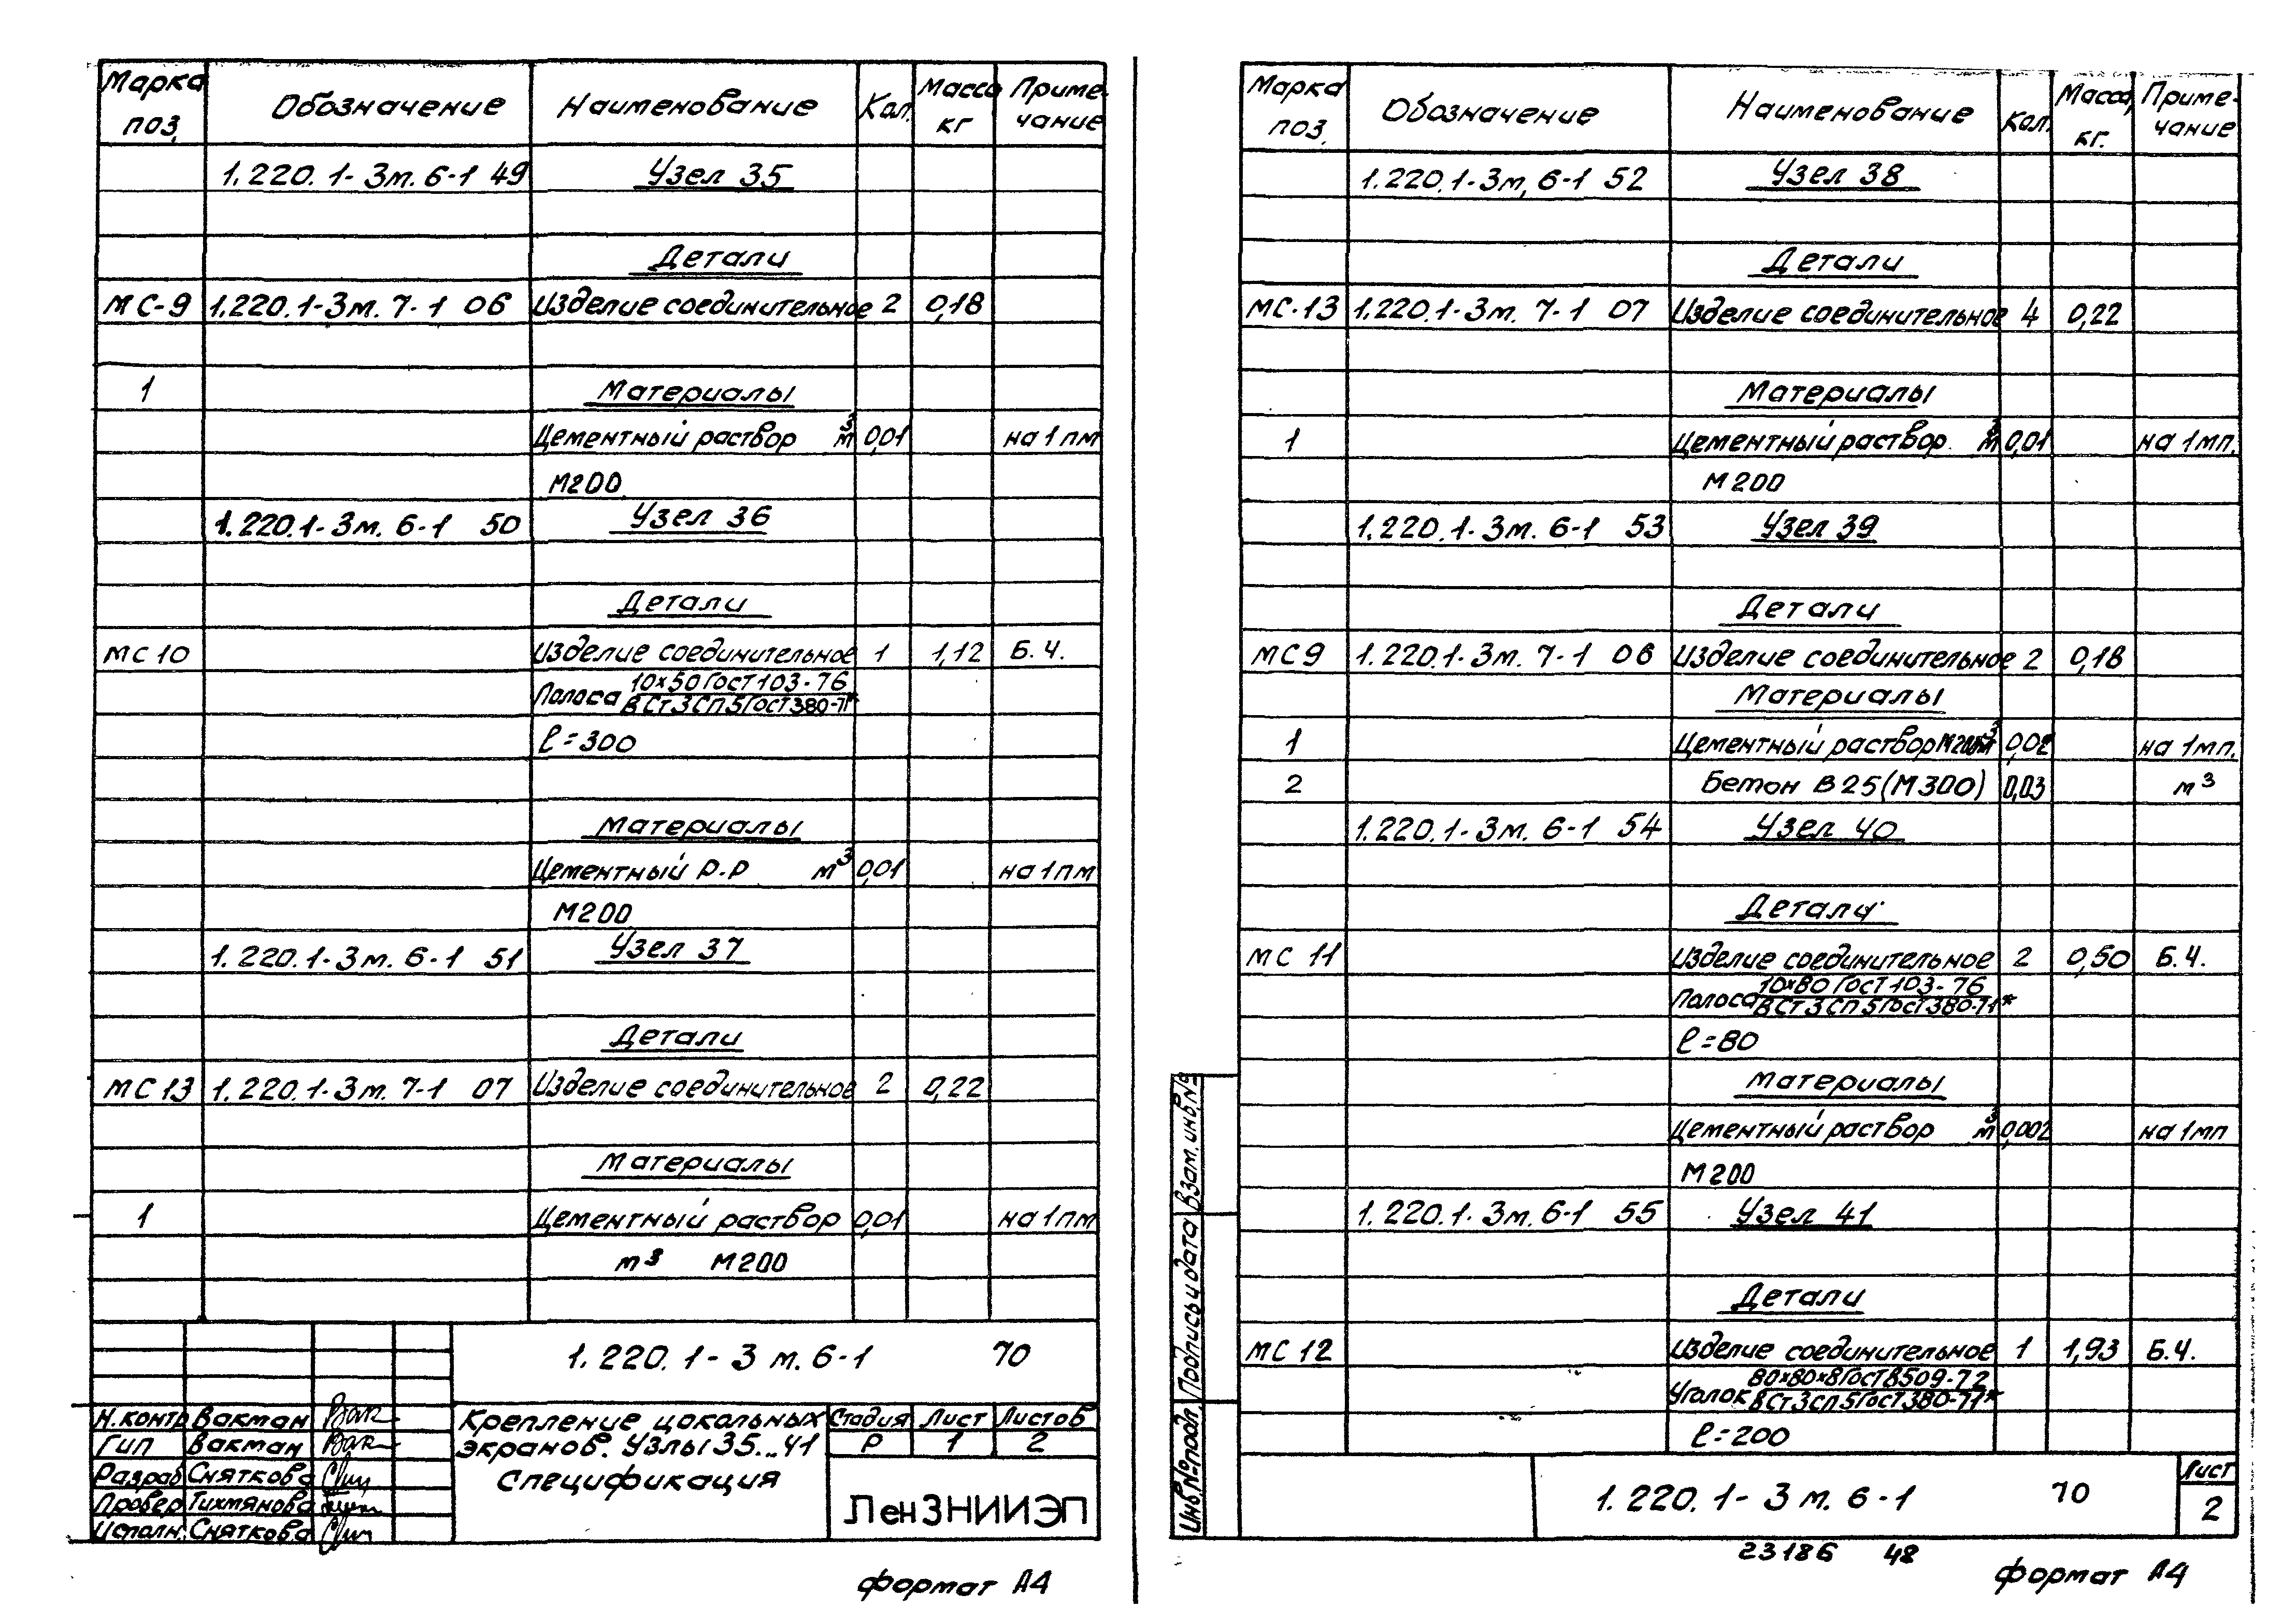 Марка поз. Обозначение Наименование Кол. Масса кг Примечание
1.220.1-3м.6-1 49 Узел 35
Детали
МС-9 1.220.1-3м.7-1 06 Изделие соединительное 2 0,18
1 Материалы
Цементный раствор м³ 0,01 на 1 пм
М200
1.220.1-3м.6-1 50 Узел 36
Детали
МС10 Изделие соединительное 1 1,12 Б.Ч.
Полоса 10×50 ГОСТ 103-76
В Ст 3 сп 5 ГОСТ 380-71*
ℓ=300
Материалы
Цементный р-р м³ 0,01 на 1 пм
М200
1.220.1-3м.6-1 51 Узел 37
Детали
МС13 1.220.1-3м.7-1 07 Изделие соединительное 2 0,22
Материалы
1 Цементный раствор 0,01 на 1 пм
м³ М200
1.220.1-3м.6-1 70
Н.контр Вакман
Гип Вакман
Разраб Сняткова
Провер Тихмянова
Исполн. Сняткова
Крепление цокольных
экранов. Узлы 35...41
Спецификация
Стадия Лист Листов
Р 1 2
ЛенЗНИИЭП
формат А4
Марка поз. Обозначение Наименование Кол. Масса, кг. Примечание
1.220.1-3м,6-1 52 Узел 38
Детали
МС-13 1.220.1-3м.7-1 07 Изделие соединительное 4 0,22
Материалы
1 Цементный раствор. м³ 0,01 на 1мп.
М200
1.220.1-3м.6-1 53 Узел 39
Детали
МС9 1.220.1-3м.7-1 06 Изделие соединительное 2 0,18
Материалы
1 Цементный раствор М200 м³ 0,02 на 1мп.
2 Бетон В25(М300) 0,03 м³
1.220.1-3м.6-1 54 Узел 40
Детали
МС 11 Изделие соединительное 2 0,50 Б.Ч.
Полоса 10×80 ГОСТ 103-76
В Ст 3 сп 5 ГОСТ 380-71*
ℓ=80
Материалы
Цементный раствор м³ 0,002 на 1мп
М200
1.220.1-3м.6-1 55 Узел 41
Детали
МС 12 Изделие соединительное 1 1,93 Б.Ч.
Уголок 80×80×8 ГОСТ 8509-72
В Ст 3 сп 5 ГОСТ 380-71*
ℓ=200
Взам. инв №
Подпись и дата
Инв № подл.
1.220.1-3м.6-1 70
Лист
2
23186 48
формат А4